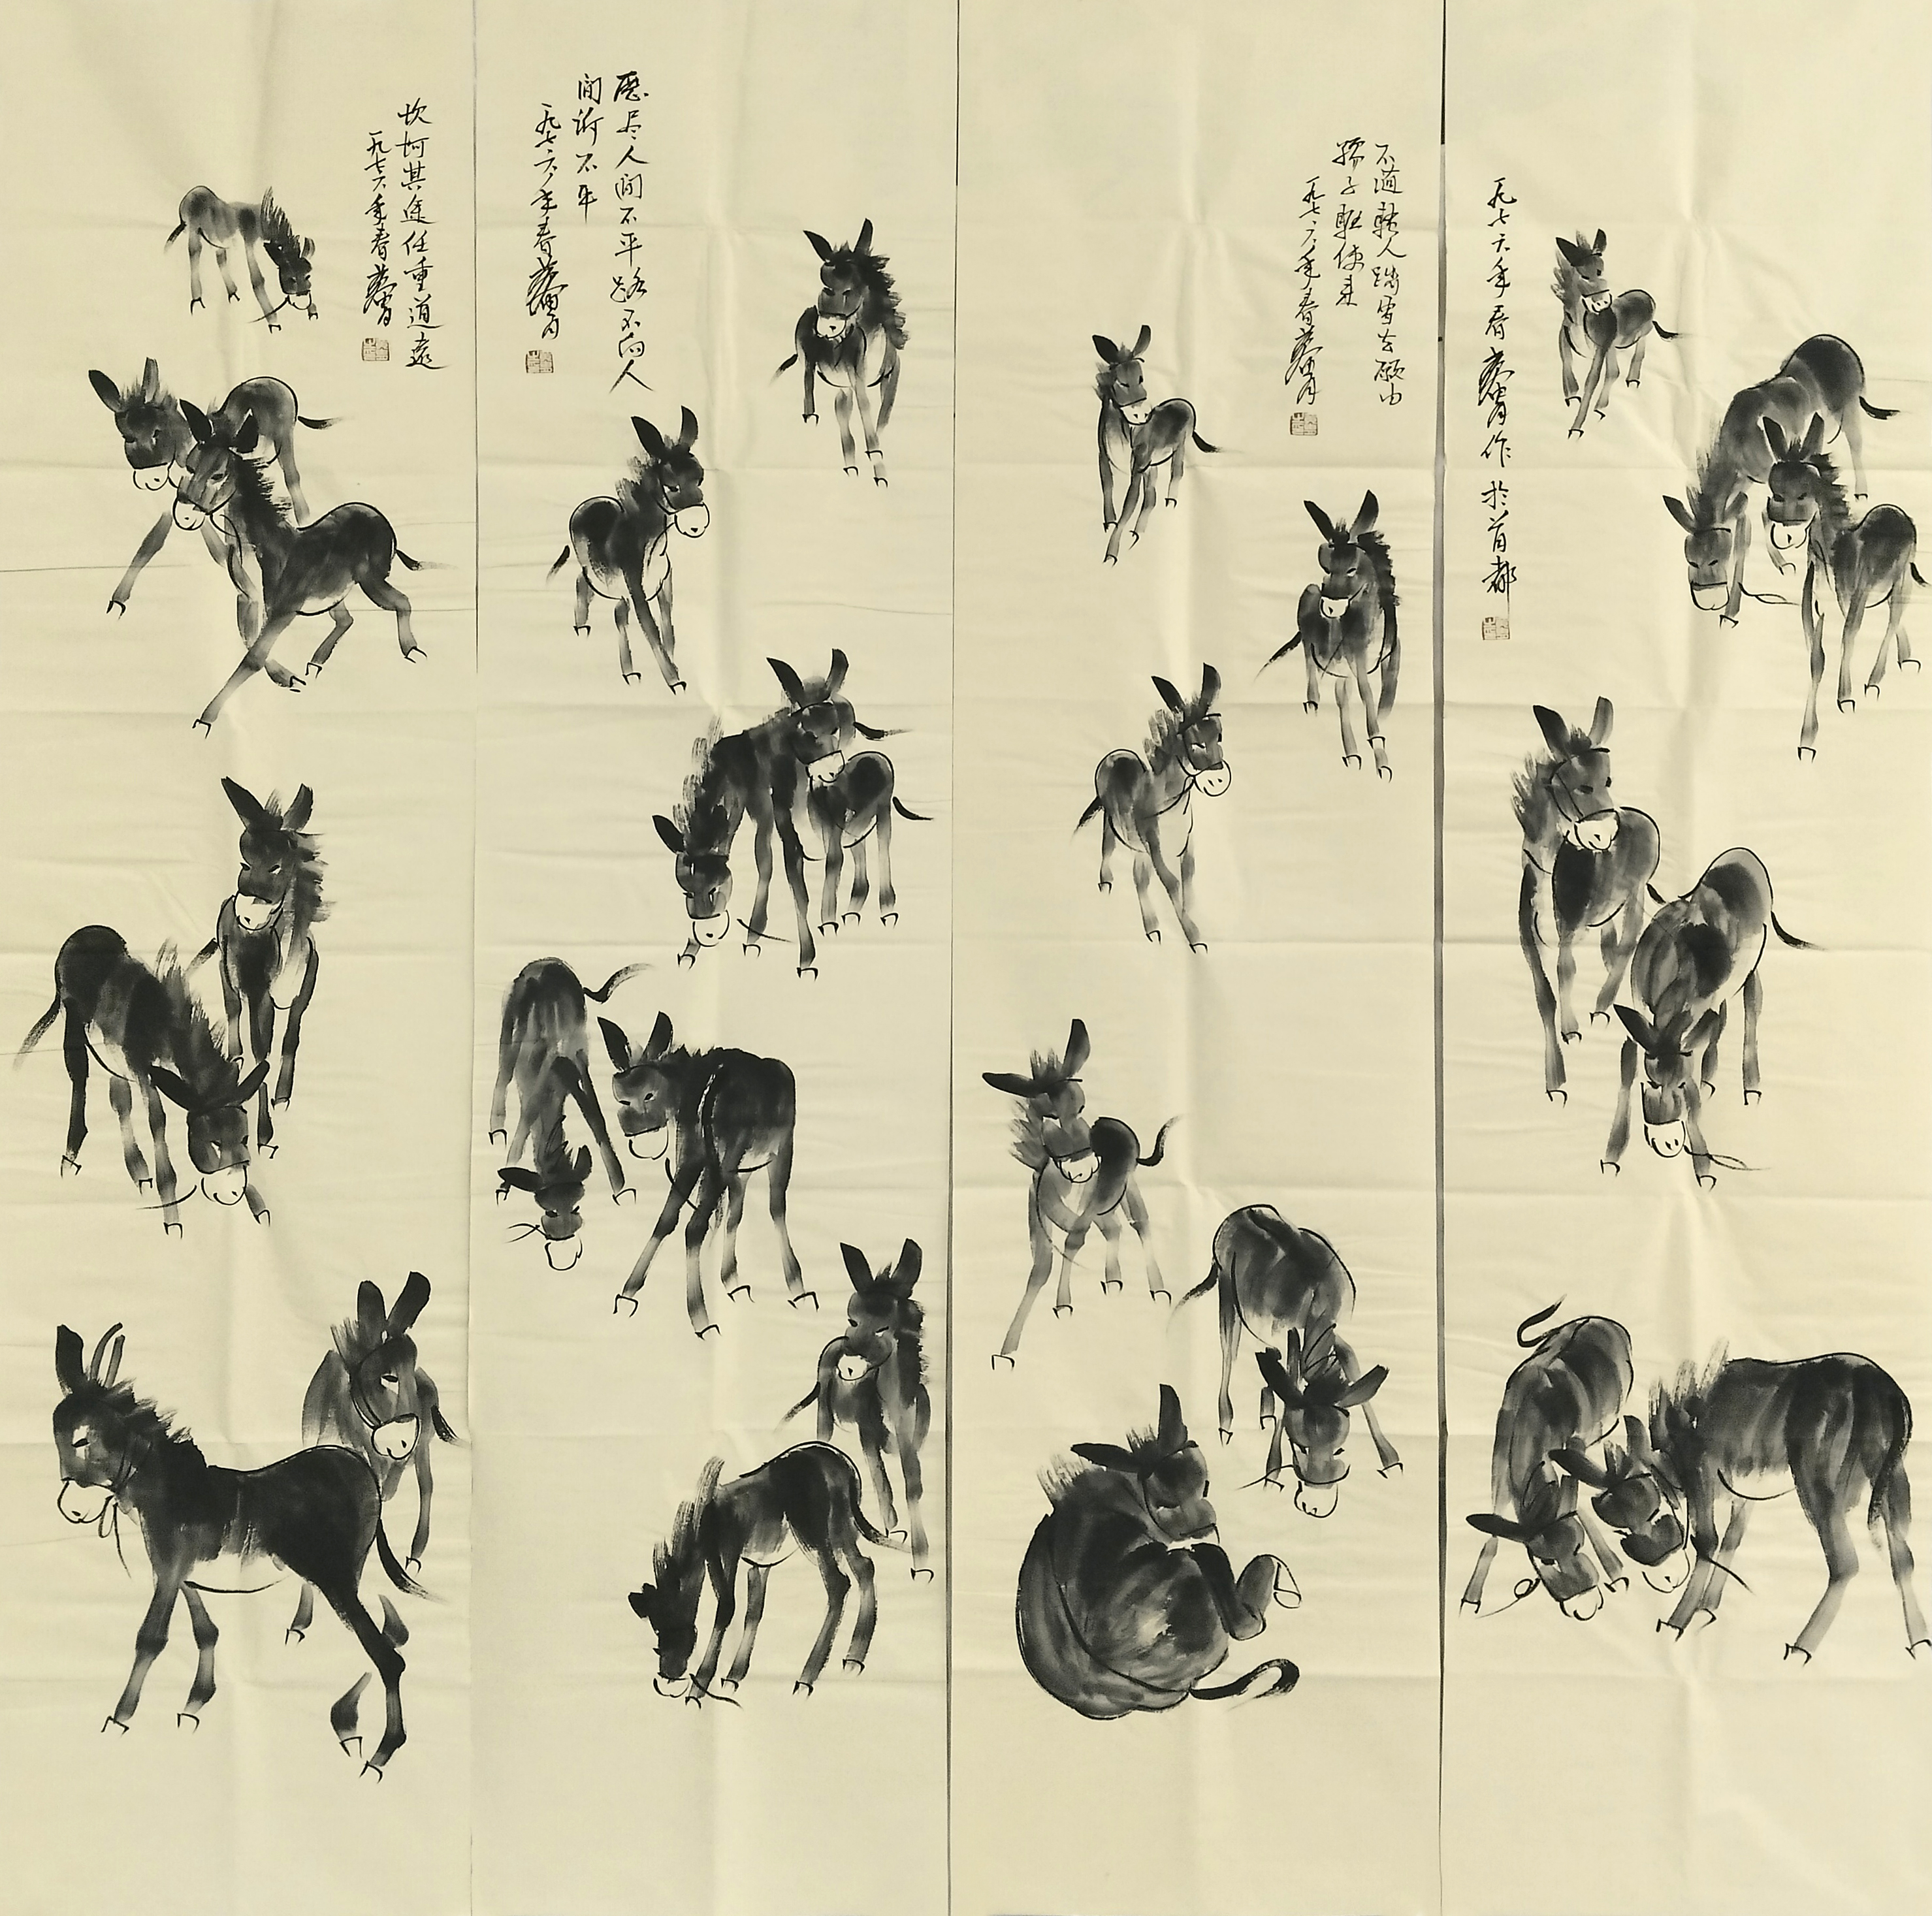 一九七六年春黄胄作於首都
不道轅人踏雪去願由
驢子軽使来
一九七六年春黄胄
歷尽人间不平路不向人
间訴不平
一九七六年春黄胄
坎坷其途任重道遠
一九七六年春黄胄